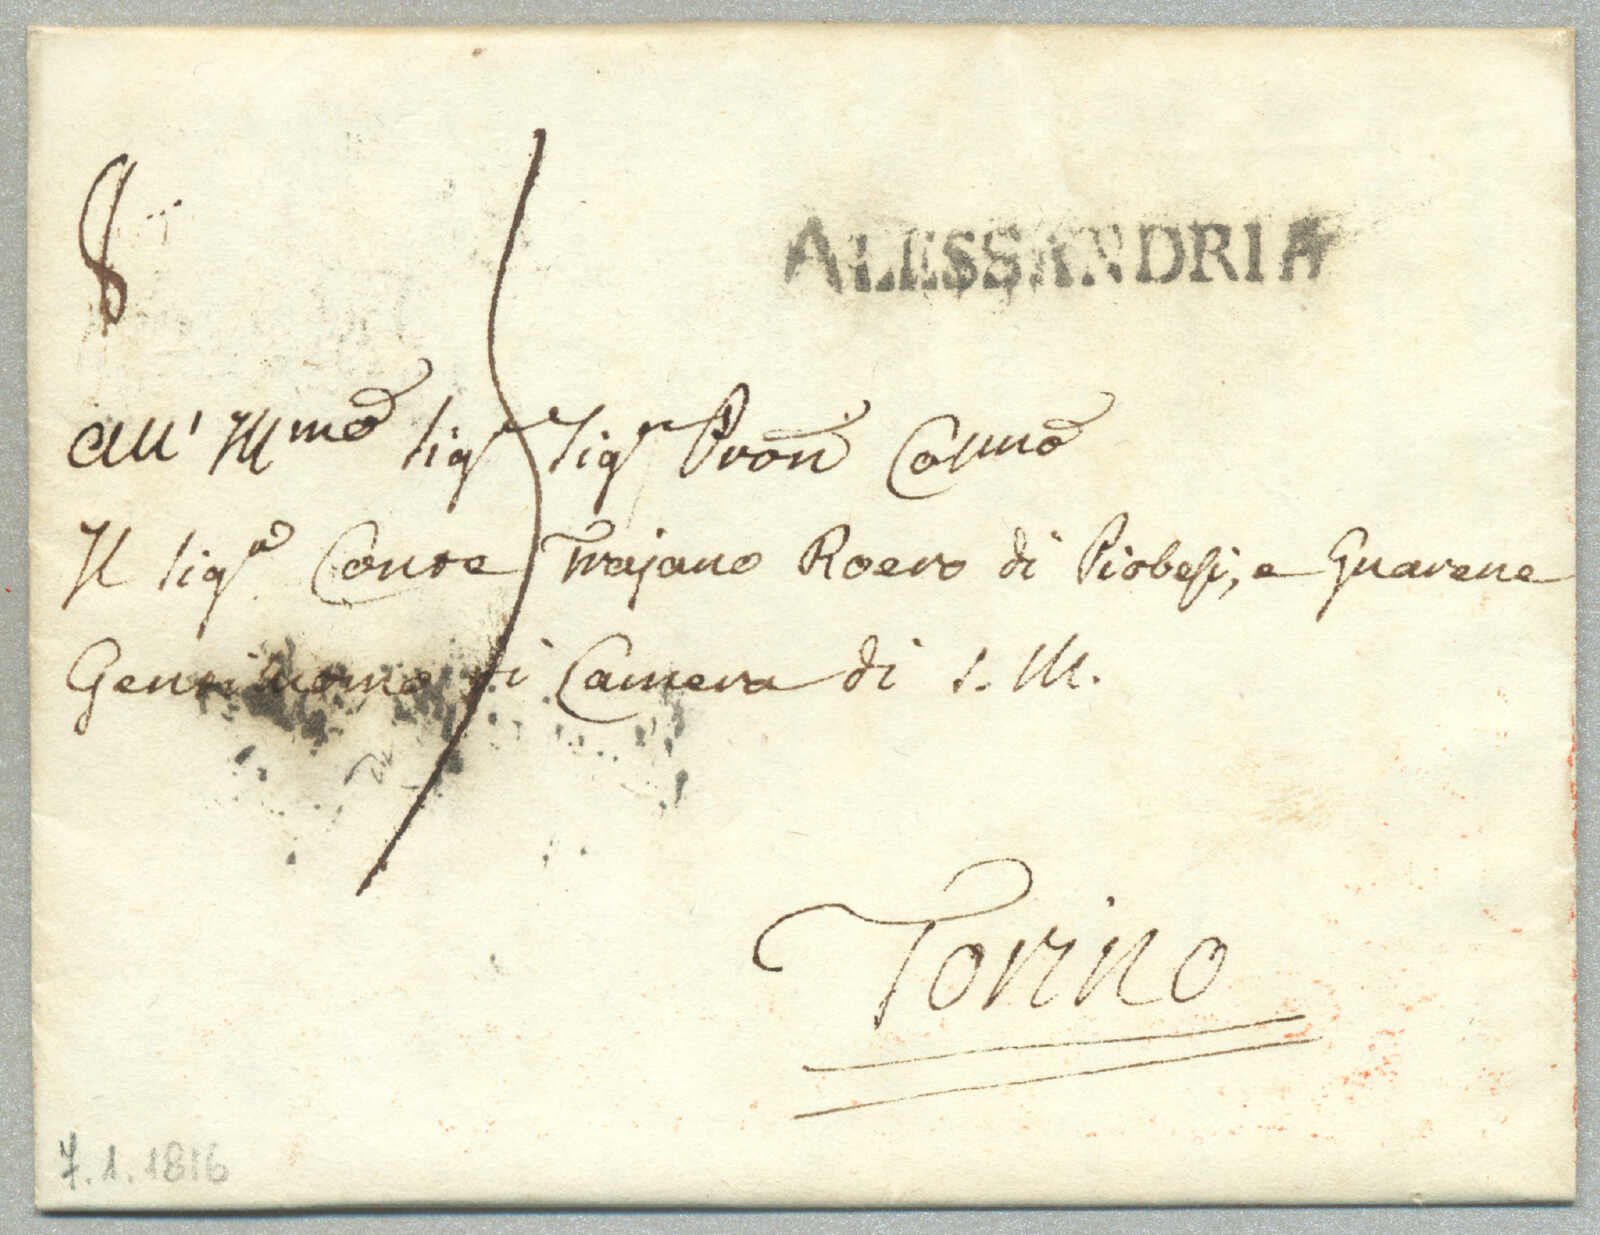 8
ALESSANDRIA
All' Illmo Sigr Sigr Pron Colmo
Il Sigr Conte Trajano Roero di Piobesi, e Guarene
Gentiluomo di Camera di S. M.
Torino
7.1.1816